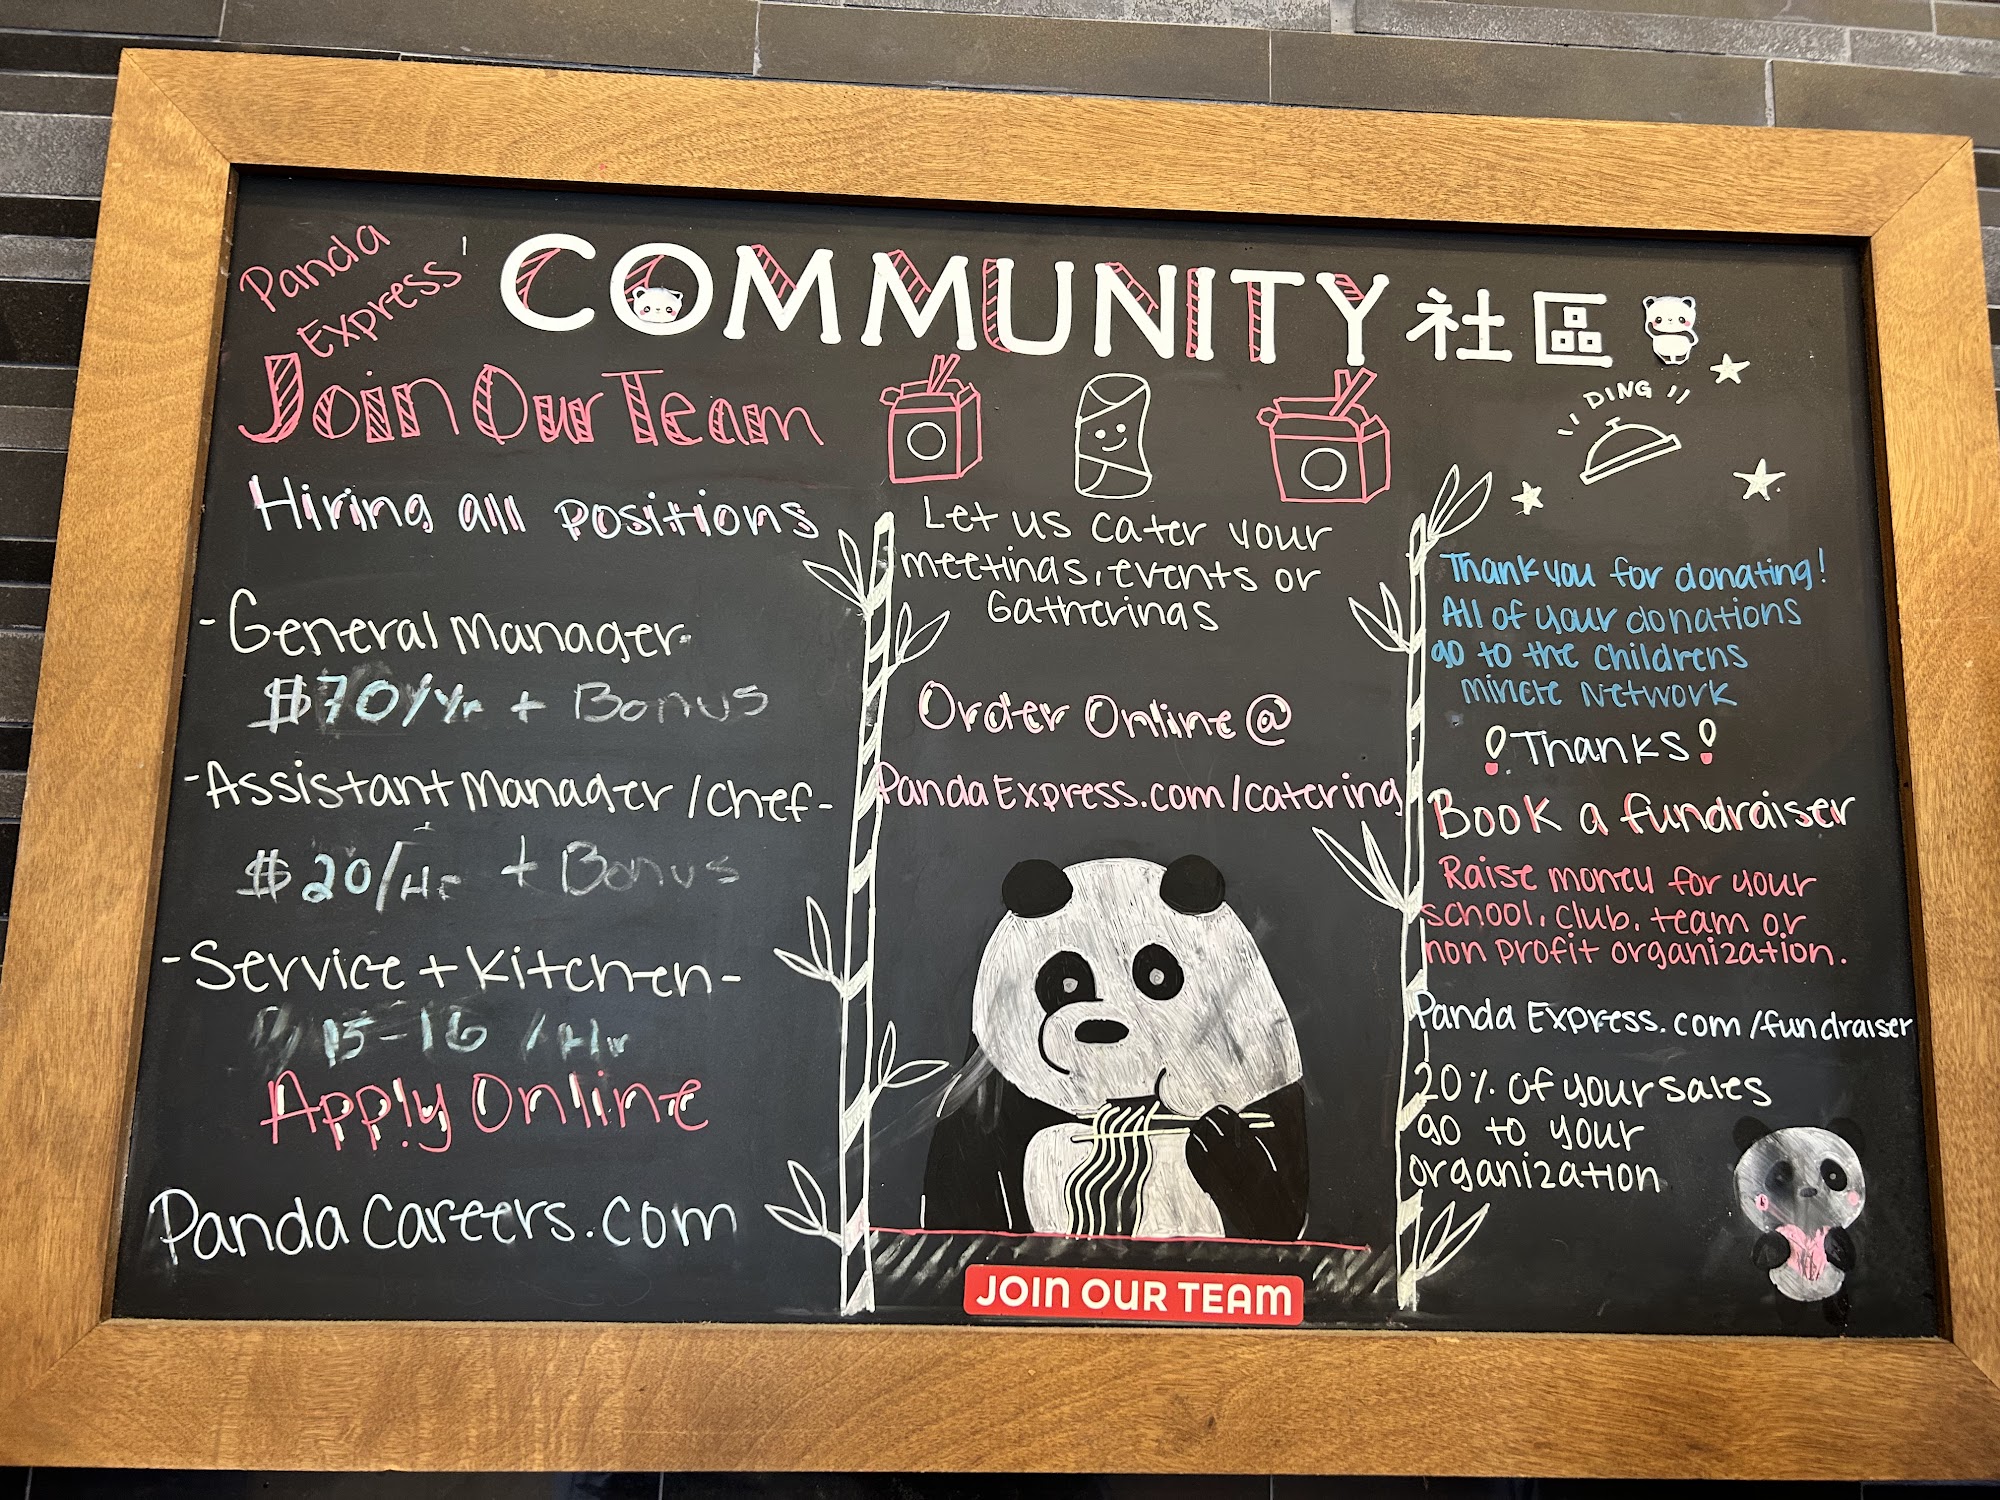 Panda
Express'
COMMUNITY 社區
Join Our Team
Hiring all positions
-General Manager-
$70/yr + Bonus
-Assistant Manager/Chef-
$20/Hr + Bonus
-Service + Kitchen-
15-16 /Hr
Apply Online
PandaCareers.com
Let us cater your
meetings, events or
Gatherings
Order Online @
PandaExpress.com/catering
JOIN OUR TEAM
DING
Thank you for donating!
All of your donations
go to the childrens
mircle Network
!Thanks!
Book a fundraiser
Raise money for your
school, club, team or
non profit organization.
Panda Express.com/fundraiser
20% of your sales
go to your
organization